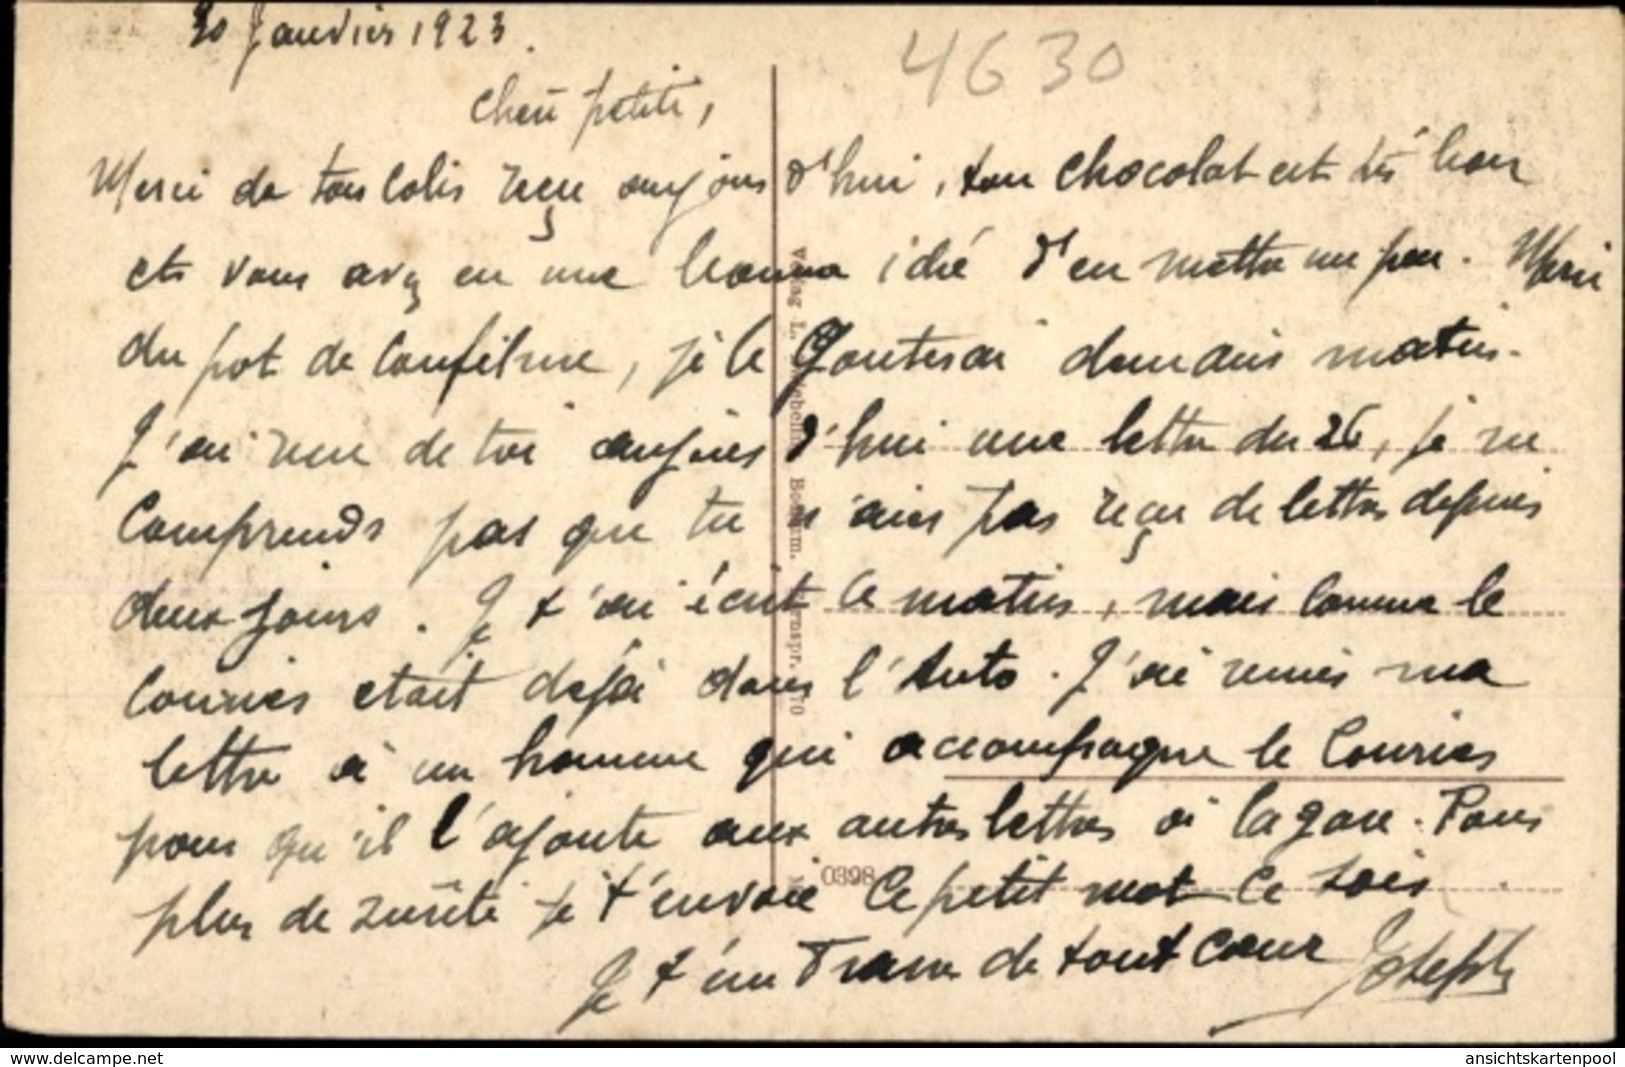 30 Janvier 1923.
4630
Chère petite,
Merci de ton Colis reçu aujourd'hui, ton chocolat est très bon
et vous avez eu une bonne idée d'en mettre un peu. Merci
du pot de Confiture, je le Gouterai demain matin.
J'ai reçu de toi aujourd'hui une lettre du 26, je ne
Comprends pas que tu n'aies pas reçu de lettres depuis
deux jours. Je t'ai écrit ce matin, mais comme le
Courrier etait dejà dans l'Auto. J'ai remis ma
lettre à un homme qui accompagne le Courrier
pour qu'il l'ajoute aux autres lettres à la gare. Pour
plus de sureté je t'envoie ce petit mot ce soir
Je t'embrasse de tout Coeur Joseph
0398
www.delcampe.net
ansichtskartenpool